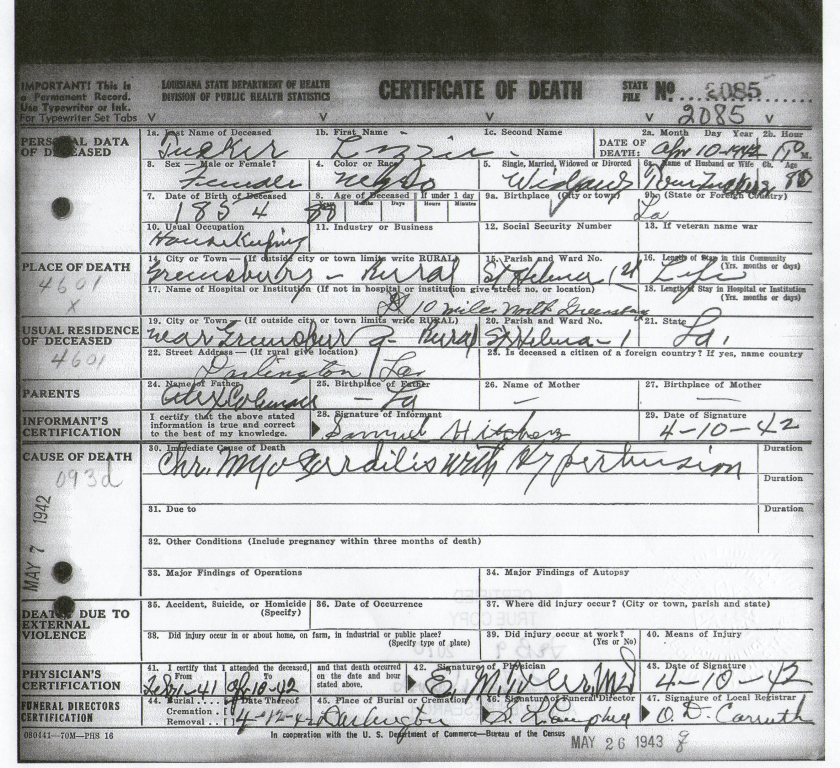 IMPORTANT! This is a Permanent Record. Use Typewriter or Ink. For Typewriter Set Tabs
LOUISIANA STATE DEPARTMENT OF HEALTH
DIVISION OF PUBLIC HEALTH STATISTICS
CERTIFICATE OF DEATH
STATE FILE No. 2085
2085
V V V V V
PERSONAL DATA OF DECEASED
1a. Last Name of Deceased 1b. First Name 1c. Second Name 2a. Month Day Year 2b. Hour
Tucker Lizzie - DATE OF DEATH: Apr 10-1942 M.
3. Sex—Male or Female? 4. Color or Race 5. Single, Married, Widowed or Divorced 6a. Name of Husband or Wife 6b. Age
Female Negro Widow Tucker
7. Date of Birth of Deceased 8. Age of Deceased If under 1 day 9a. Birthplace (City or town) 9b. (State or Foreign Country)
1854 88 Months Days Hours Minutes La
10. Usual Occupation 11. Industry or Business 12. Social Security Number 13. If veteran name war
Housekeeping
PLACE OF DEATH
4601
X
14. City or Town—(If outside city or town limits write RURAL) 15. Parish and Ward No. 16. Length of Stay in this Community (Yrs. months or days)
Greensburg - Rural St Helena 1st Life
17. Name of Hospital or Institution (If not in hospital or institution give street no. or location) 18. Length of Stay in Hospital or Institution (Yrs. months or days)
10 miles North Greensburg
USUAL RESIDENCE OF DECEASED
4601
19. City or Town—(If outside city or town limits write RURAL) 20. Parish and Ward No. 21. State
near Greensburg - Rural St Helena - 1 La.
22. Street Address—(If rural give location) 23. Is deceased a citizen of a foreign country? If yes, name country
Darlington La
PARENTS
24. Name of Father 25. Birthplace of Father 26. Name of Mother 27. Birthplace of Mother
Alex Coleman - La — —
INFORMANT'S CERTIFICATION
I certify that the above stated information is true and correct to the best of my knowledge.
28. Signature of Informant 29. Date of Signature
Samuel 4-10-42
CAUSE OF DEATH
093d
30. Immediate Cause of Death Duration
Chr. Myocarditis with Hypertension
Duration
31. Due to Duration
32. Other Conditions (Include pregnancy within three months of death)
33. Major Findings of Operations 34. Major Findings of Autopsy
MAY 7 1942
DEATH DUE TO EXTERNAL VIOLENCE
35. Accident, Suicide, or Homicide (Specify) 36. Date of Occurrence 37. Where did injury occur? (City or town, parish and state)
38. Did injury occur in or about home, on farm, in industrial or public place? (Specify type of place) 39. Did injury occur at work? (Yes or No) 40. Means of Injury
PHYSICIAN'S CERTIFICATION
41. I certify that I attended the deceased, and that death occurred on the date and hour stated above. 42. Signature of Physician 43. Date of Signature
From To
Feb 1-41 Apr 10-42 M.D. 4-10-42
FUNERAL DIRECTORS CERTIFICATION
44. Burial Date Thereof 45. Place of Burial or Cremation 46. Signature of Funeral Director 47. Signature of Local Registrar
Cremation
Removal 4-12-42 Darlington O. D. Carruth
080441—70M—PHS 16
In cooperation with the U. S. Department of Commerce—Bureau of the Census
MAY 26 1943